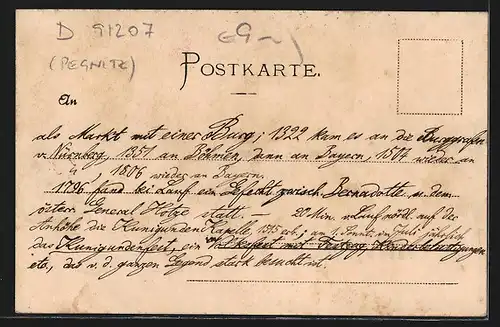 D 91207
(PEGNITZ)
POSTKARTE.
An
als Markt mit einer Burg; 1322 kam es an die Burggrafen
v. Nürnberg, 1351 an Böhmen, dann an Bayern, 1504 wieder an
1806 wieder an Bayern.
1796 fand bei Lauf ein Gefecht zwisch. Bernadotte u. dem
östern General Hotze statt. — 20 Min v. Lauf nördl. auf der
Anhöhe die Kunigunden Kapelle, erb.; am 1. Sonnt. im Juli jährlich
das Kunigundenfest, ein Volksfest mit Festzug, Kinderbelustigungen
etc., das v. d. ganzen Gegend stark besucht ist.